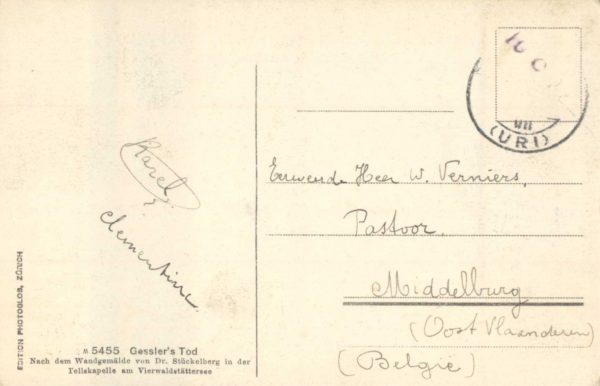 (URI)
Karel
&
Clementine.
Eerwende Heer W. Verniers,
Pastoor.
Middelburg
(Oost Vlaanderen)
(België)
EDITION PHOTOGLOB, ZÜRICH
№ 5455 Gessler's Tod
Nach dem Wandgemälde von Dr. Stückelberg in der
Tellskapelle am Vierwaldstättersee